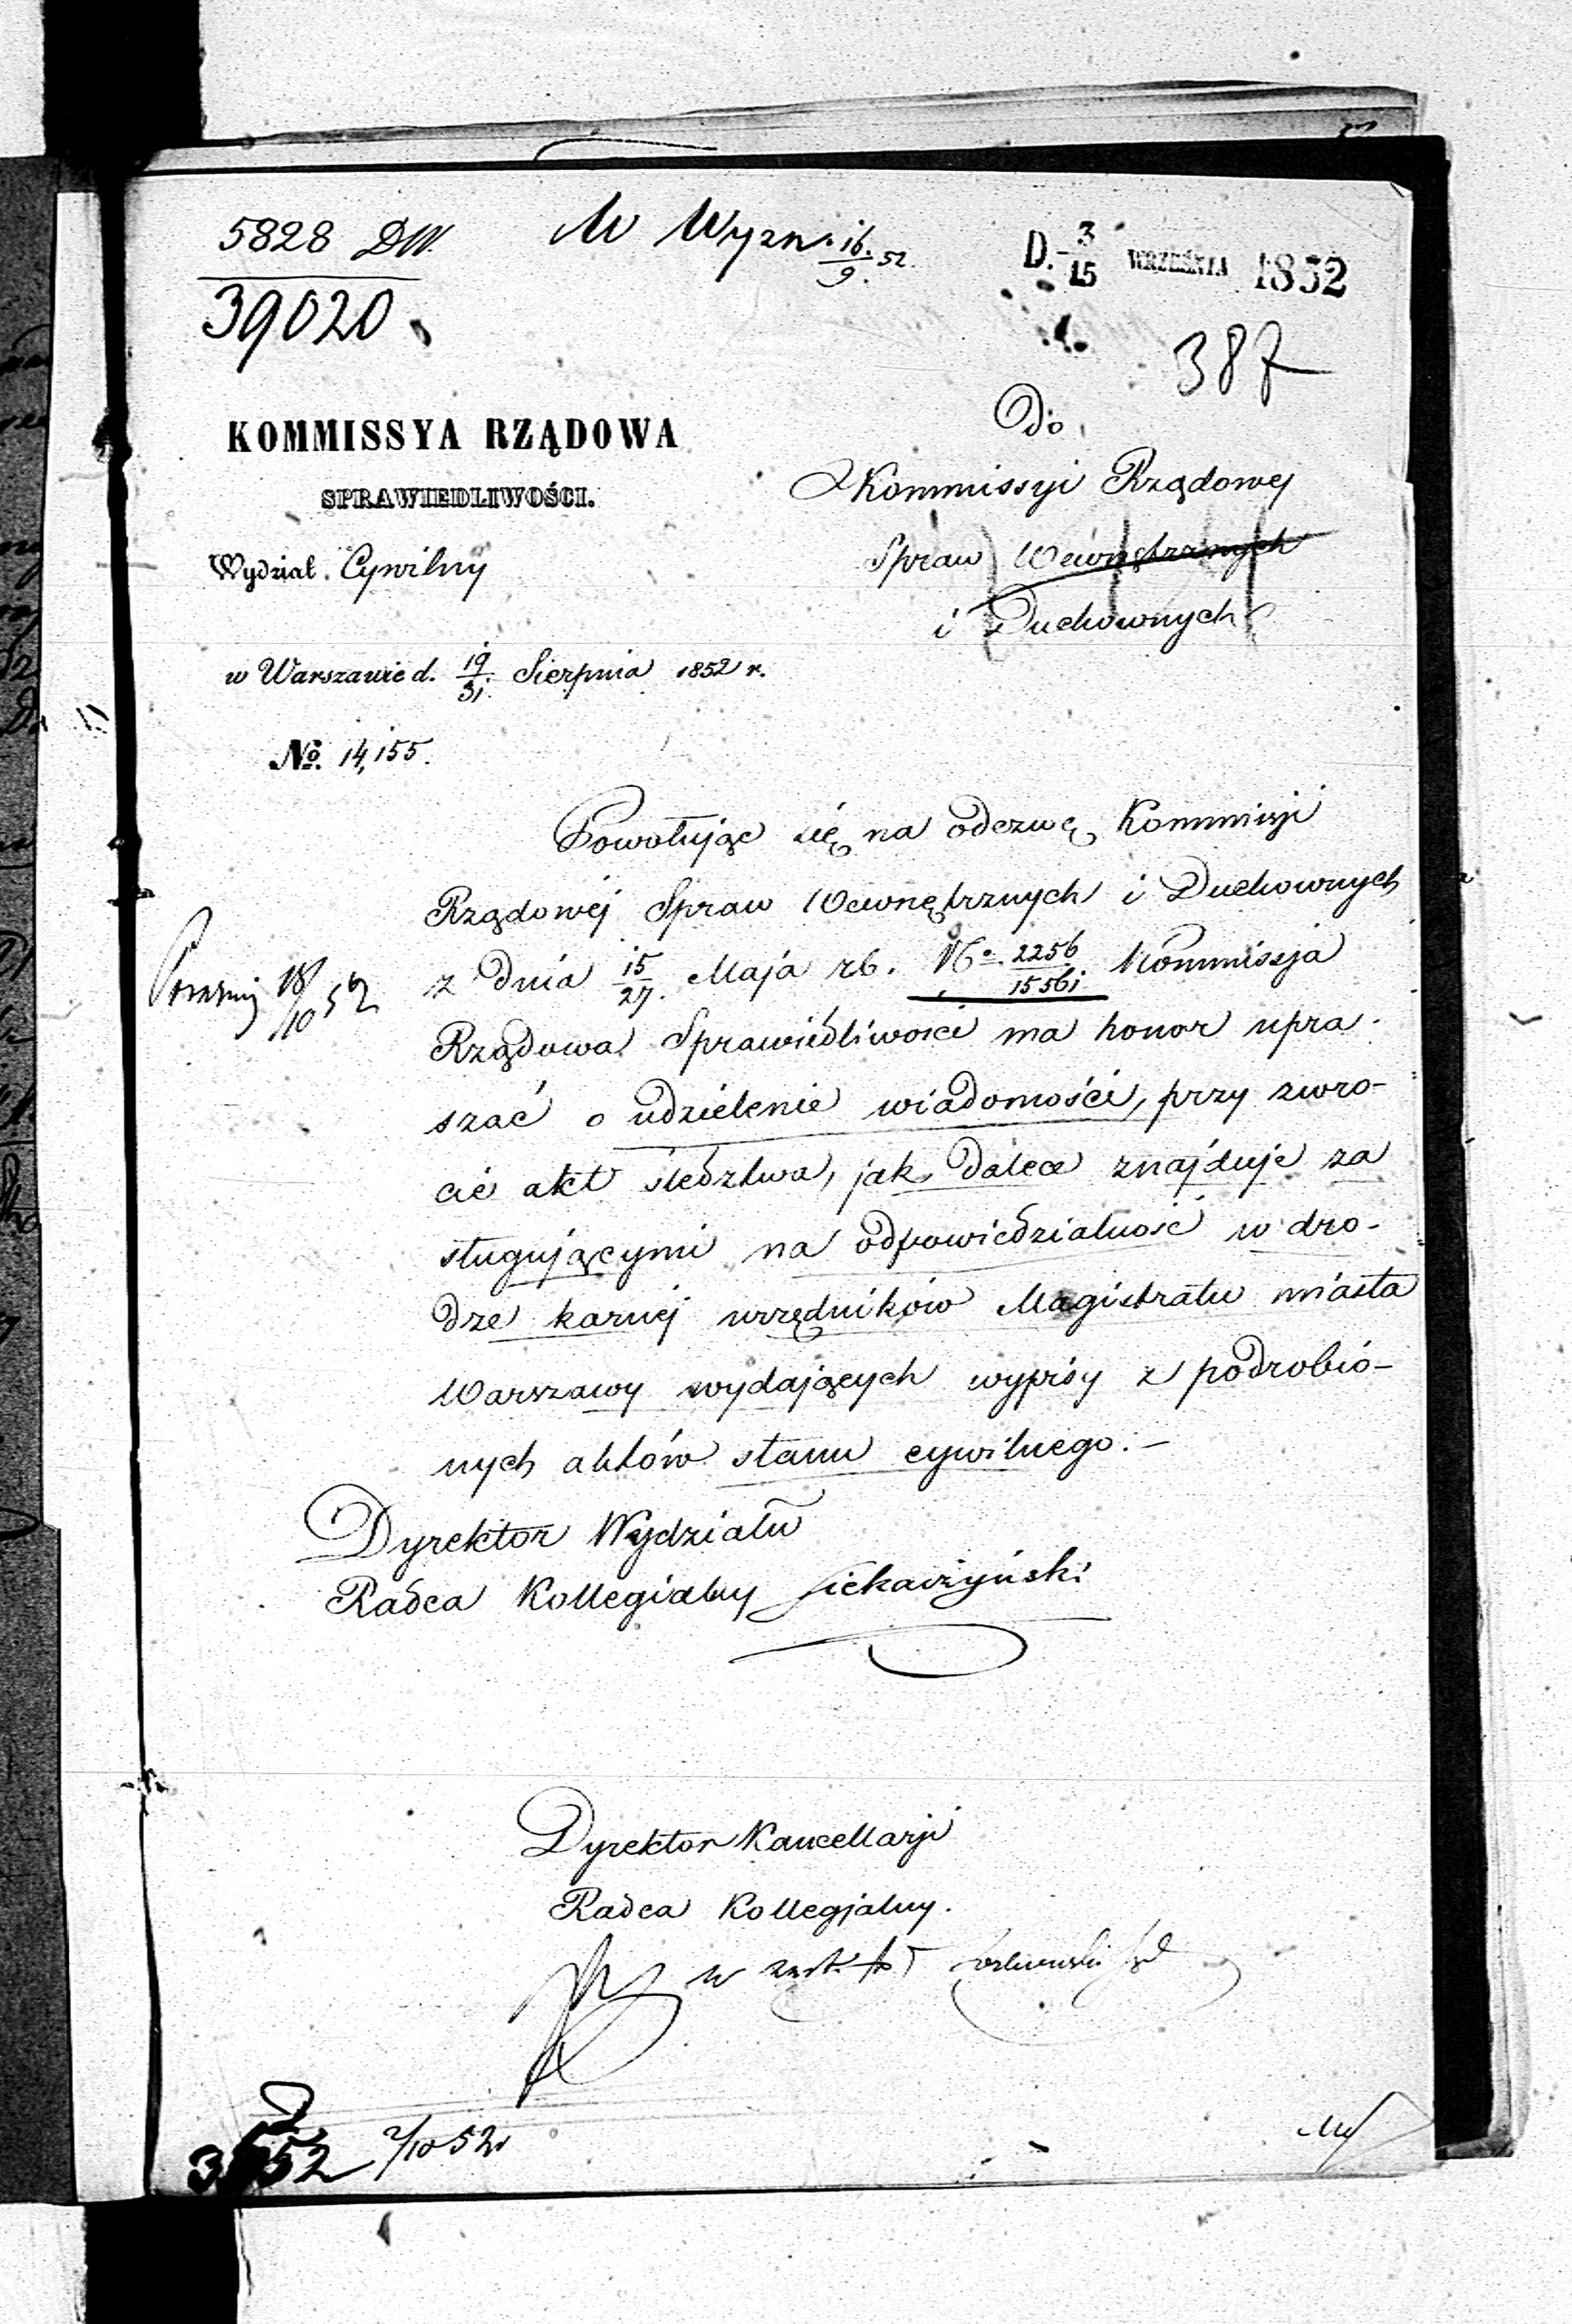 5828 DW.
39020
W Wyzn. 16/9. 52.
D. 3/15 WRZEŚNIA 1852
387
KOMMISSYA RZĄDOWA
SPRAWIEDLIWOŚCI.
Wydział Cywilny
w Warszawie d. 19/31. Sierpnia 1852 r.
No. 14,155.
Do
Kommissyi Rządowej
Spraw Wewnętrznych
i Duchownych
Powołując się na odezwę Kommisji
Rządowej Spraw Wewnętrznych i Duchownych
z dnia 15/27. Maja rb. No. 2256/15561 Kommissja
Rządowa Sprawiedliwości ma honor upra-
szać o udzielenie wiadomości, przy zwro-
cie akt śledztwa, jak dalece znajduje za
sługującymi na odpowiedzialność w dro-
dze karnej urzędników Magistratu miasta
Warszawy wydających wypisy z podrobio-
nych aktów stanu cywilnego.—
18/10 52
Dyrektor Wydziału
Radca Kollegialny
Dyrektor Kancellarji
Radca Kollegjalny.
w zast.
2/10 52